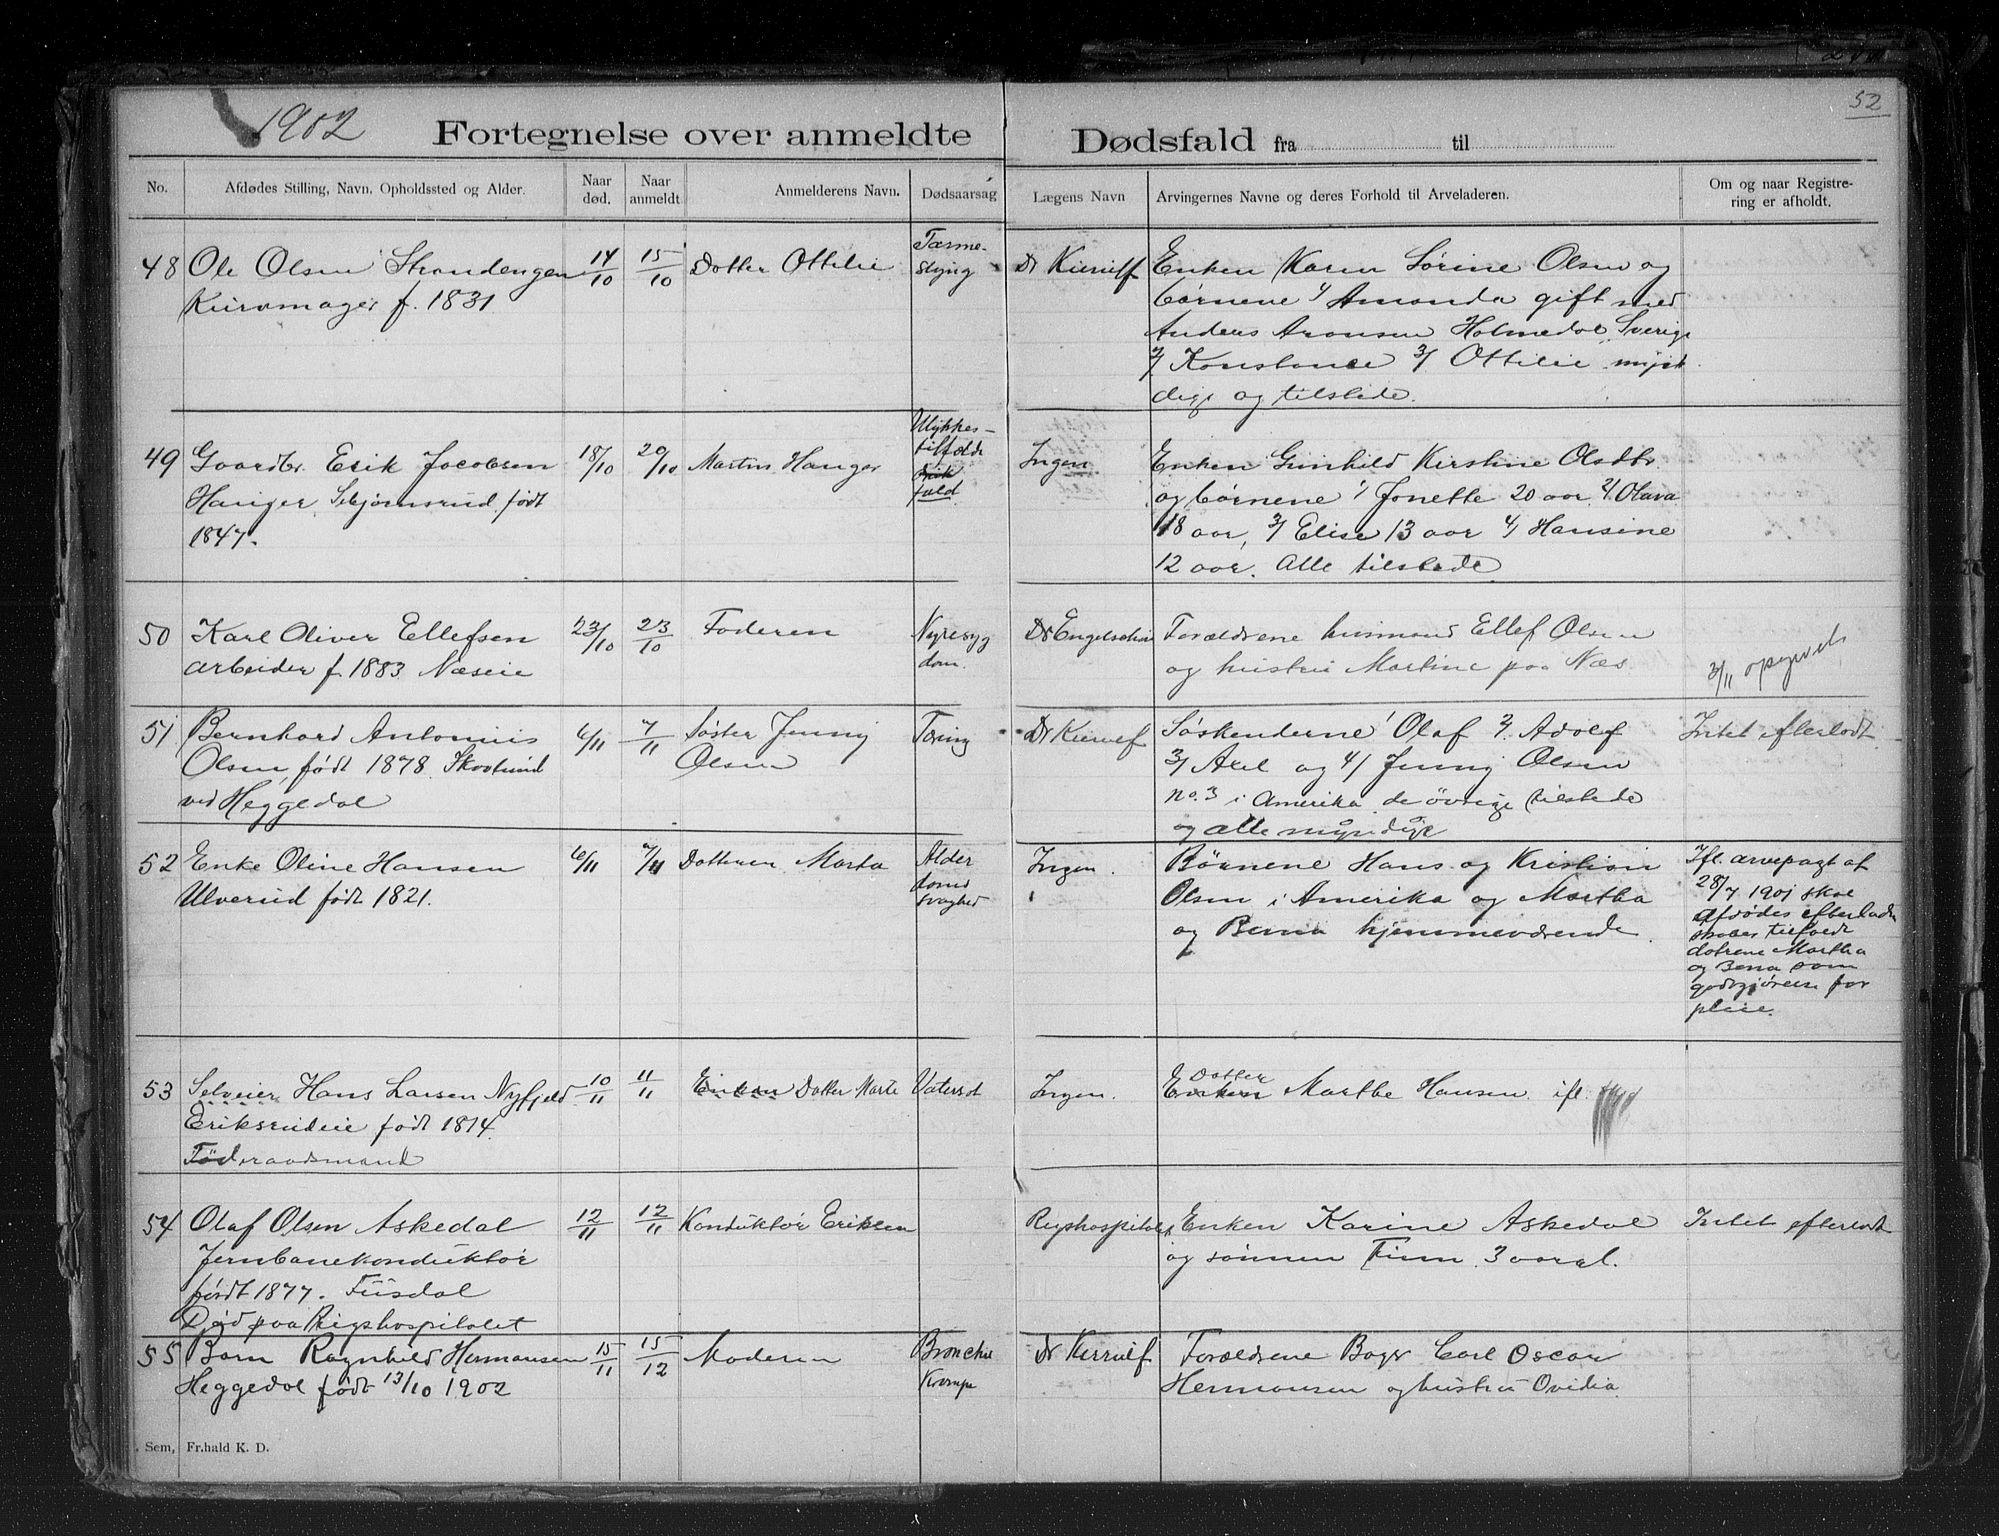 1902
52
Fortegnelse over anmeldte Dødsfald fra til
No.
Afdødes Stilling, Navn, Opholdssted og Alder.
Naar død.
Naar anmeldt
Anmelderens Navn.
Dødsaarsag
Lægens Navn
Arvingernes Navne og deres Forhold til Arveladeren.
Om og naar Registre-
ring er afholdt.
48
Ole Olsen Strandengen
Kurvmager f. 1831
14/10
15/10
Datter Ottilie
Tarme-
slyng
Dr Kierulf
Enken Karen Sørine Olsen og
børnene 1/ Amanda gift med
Anders Aronsen Holmedal, Sverige
2/ Konstance 3/ Ottilie myn
dige og tilstede.
49
Gaardbr. Erik Jacobsen
Hanger, Sebjørnsrud født
1847.
18/10
20/10
Martin Hanger
Ulykkes-
tilfælde
fald
Ingen
Enken Gunhild Kirstine Olsdtr
og børnene 1/ Jonette 20 aar 2/ Olava
18 aar, 3/ Elise 13 aar 4/ Hansine
12 aar. Alle tilstede
50
Karl Oliver Ellefsen
arbeider f. 1883 Næseie
23/10
23/10
Faderen
Nyresyg
dom.
Dr Engelschiøn
Forældrene husmand Ellef Olsen
og hustru Martine paa Næs
3/11 opgivet
51
Bernhard Antonius
Olsen, født 1878. Skovlund
ved Heggedal
6/11
7/11
Søster Jenny
Olsen
Tæring
Dr Kierulf
Søskenderne 1 Olaf 2/ Adolf
3/ Axel og 4/ Jenny Olsen
no. 3 i Amerika de øvrige tilstede
og alle myndige
Intet efterladt.
52
Enke Oline Hansen
Ulverud født 1821.
6/11
7/11
Datteren Marta
Alder
doms
svaghed
Ingen.
Børnene Hans og Kristian
Olsen i Amerika og Martha
og Berna hjemmeværende.
Ifl. arvepagt af
28/7 1901 skal
afdødes efterladen
skaber tilfalde
døtrene Martha
og Berna som
godtgjørelse for
pleie.
53
Selveier Hans Larsen Nyfjeld
Eriksrudeie født 1814.
Føderaadsmand
10/11
11/11
Enken Datter Marte
Vatersot
Ingen.
Datter
Enken Marthe Hansen ifl.
54
Olaf Olsen Askedal
Jernbanekonduktør
født 1877. Fusdal
Død paa Rigshospitalet
12/11
12/11
Konduktør Eriksen
Rigshospitalet
Enken Karine Askedal
og sønnen Finn 3 aar gl.
Intet efterladt
55
Barn Ragnhild Hermansen
Heggedal født 13/10 1902
15/11
15/12
Moderen
Bronchie
Krampe
Dr Kierulf
Forældrene Bager Carl Oscar
Hermansen og hustru Ovidia.
. Sem, Fr.hald K. D.